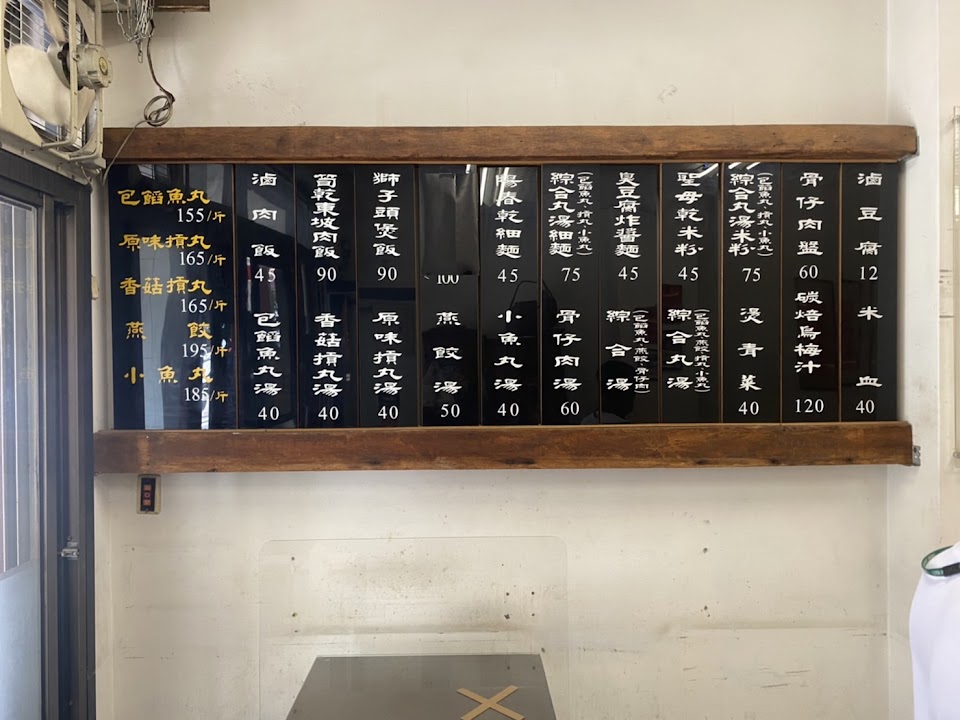 包餡魚丸
155/斤
原味摃丸
165/斤
香菇摃丸
165/斤
燕餃
195/斤
小魚丸
185/斤
滷肉飯
45
包餡魚丸湯
40
筍乾東坡肉飯
90
香菇摃丸湯
40
獅子頭煲飯
90
原味摃丸湯
40
100
燕餃湯
50
陽春乾細麵
45
小魚丸湯
40
綜合丸湯細麵
(包餡魚丸.摃丸.小魚丸)
75
骨仔肉湯
60
臭豆腐炸醬麵
45
綜合湯
(包餡魚丸.燕餃.骨仔肉)
聖母乾米粉
45
綜合丸湯
(包餡魚丸.燕餃.摃丸.小魚丸)
綜合丸湯米粉
(包餡魚丸.摃丸.小魚丸)
75
燙青菜
40
骨仔肉盤
60
碳焙烏梅汁
120
滷豆腐
12
米血
40